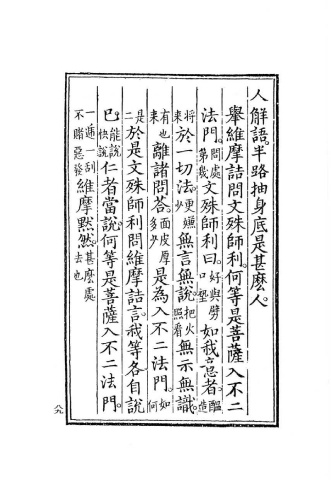 人解語。半路抽身底是甚麼人。
舉維摩詰問文殊師利。何等是菩薩入不二
法門。問處第幾文殊師利曰。好與劈口塹如我意者。醞造
將來於一切法。更嫌少無言無說。把火照看無示無識。
有也離諸問答。面皮厚多少是為入不二法門。如何
是二於是文殊師利問維摩詰言。我等各自說
已。能說快說仁者當說何等是菩薩入不二法門。
一遞一刮不賭惡發維摩默然。甚麼處去也